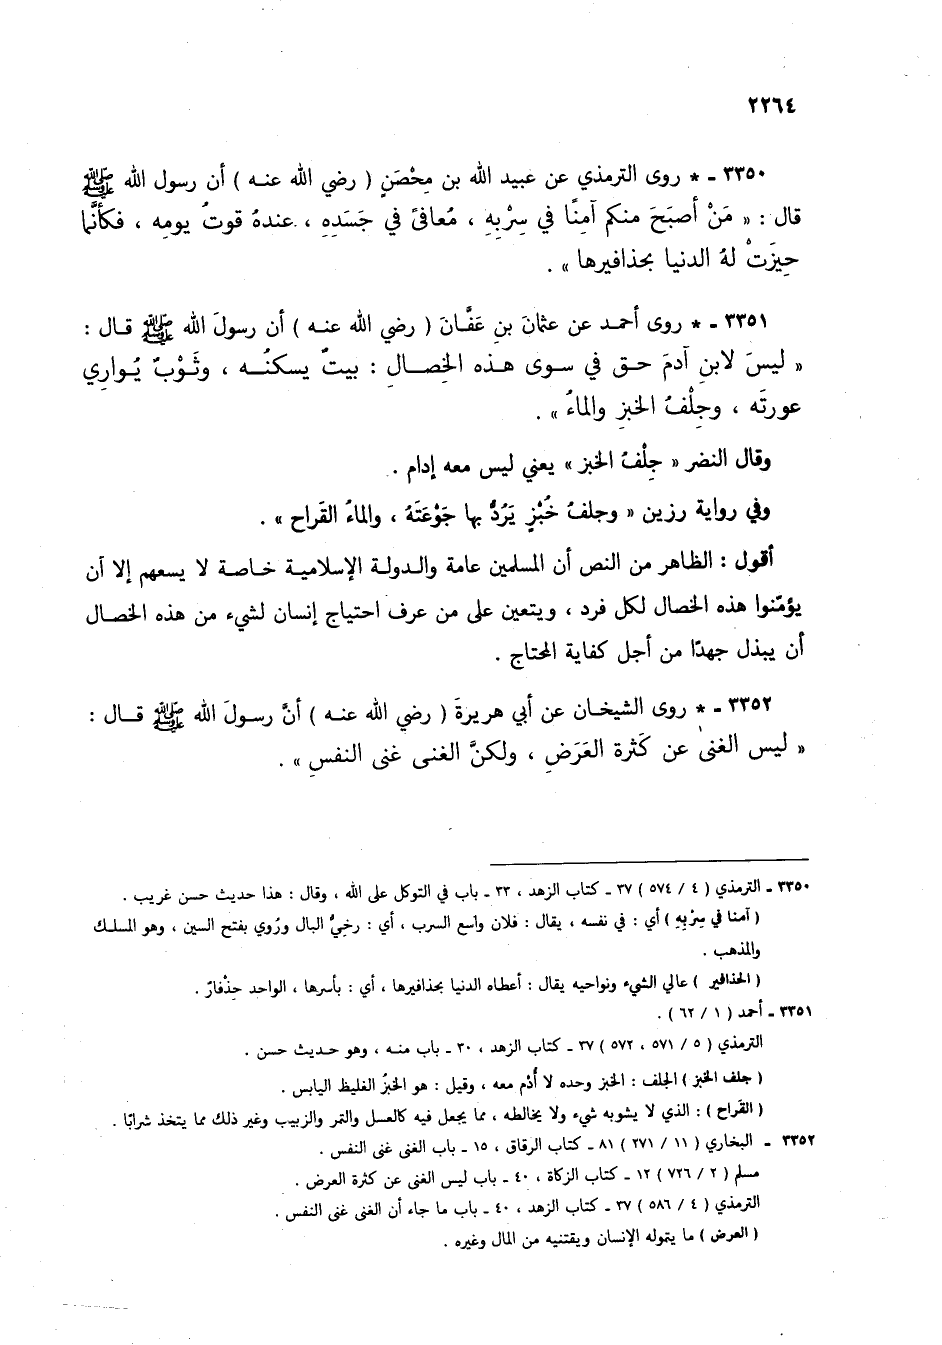 ٢٢٦٤
٣٣٥٠ ـ * روى الترمذي عن عبيد الله بن مِحْصَنٍ ( رضي الله عنـه ) أن رسول الله ﷺ
قال : « مَنْ أصبَحَ منكم آمِنًا في سِرْبِهِ ، مُعافىً في جَسَدِهِ ، عندهُ قوتُ يومِه ، فكأنَّما
حِيزَتْ لهُ الدنيا بحذافيرها » .
٣٣٥١ ـ * روى أحمـد عن عثمانَ بنِ عَفَّانَ ( رضي الله عنـه ) أن رسولَ الله ﷺ قـال :
« ليسَ لابنِ آدمَ حـق في سـوى هـذه الخِصـالِ : بيتٌ يسكنُـه ، وثَـوْبٌ يُـواري
عورتَه ، وجِلْفُ الخبزِ والماءُ » .
وقال النضر « جِلْفُ الخبز » يعني ليس معه إدام .
وفي رواية رزين « وجلفُ خُبْزٍ يَرُدُّ بها جَوْعَتَهُ ، والماءُ القَراح » .
أقول : الظاهر من النص أن المسلمين عامة والدولـة الإسلاميـة خـاصـة لا يسعهم إلا أن
يؤمّنوا هذه الخصال لكل فرد ، ويتعين على من عرف احتياج إنسان لشيء من هذه الخصـال
أن يبذل جهدًا من أجل كفاية المحتاج .
٣٣٥٢ ـ * روى الشيخـان عن أبي هريرةَ ( رضي الله عنـه ) أنَّ رسولَ الله ﷺ قـال :
« ليس الغنىٰ عن كَثرة العَرَضِ ، ولكنَّ الغنى غنى النفسِ » .
٣٣٥٠ ـ الترمذي ( ٤ / ٥٧٤ ) ٣٧ ـ كتاب الزهد ، ٣٣ ـ باب في التوكل على الله ، وقال : هذا حديث حسن غريب .
( آمنا في سِرْبِهِ ) أي : في نفسه ، يقال : فلان واسع السرب ، أي : رخيُّ البال ورُوي بفتح السين ، وهو المسلـك
والمذهب .
( الحذافير ) عالي الشيء ونواحيه يقال : أعطاه الدنيا بحذافيرها ، أي : بأسرها ، الواحد حِذْفارٌ .
٣٣٥١ ـ أحمد ( ١ / ٦٢ ) .
الترمذي ( ٥ / ٥٧١ ، ٥٧٢ ) ٣٧ ـ كتاب الزهد ، ٣٠ ـ باب منـه ، وهو حديث حسن .
( جلف الخبز ) الجلف : الخبز وحده لا أُدْم معه ، وقيل : هو الخبزُ الغليظ اليابس .
( القَراح ) : الذي لا يشوبه شيء ولا يخالطه ، مما يجعل فيه كالعسل والتمر والزبيب وغير ذلك مما يتخذ شرابًا .
٣٣٥٢ ـ البخاري ( ١١ / ٢٧١ ) ٨١ ـ كتاب الرقاق ، ١٥ ـ باب الغنى غنى النفس .
مسلم ( ٢ / ٧٢٦ ) ١٢ ـ كتاب الزكاة ، ٤٠ ـ باب ليس الغنى عن كثرة العرض .
الترمذي ( ٤ / ٥٨٦ ) ٣٧ ـ كتاب الزهد ، ٤٠ ـ باب ما جاء أن الغنى غنى النفس .
( العرض ) ما يتموله الإنسان ويقتنيه من المال وغيره .